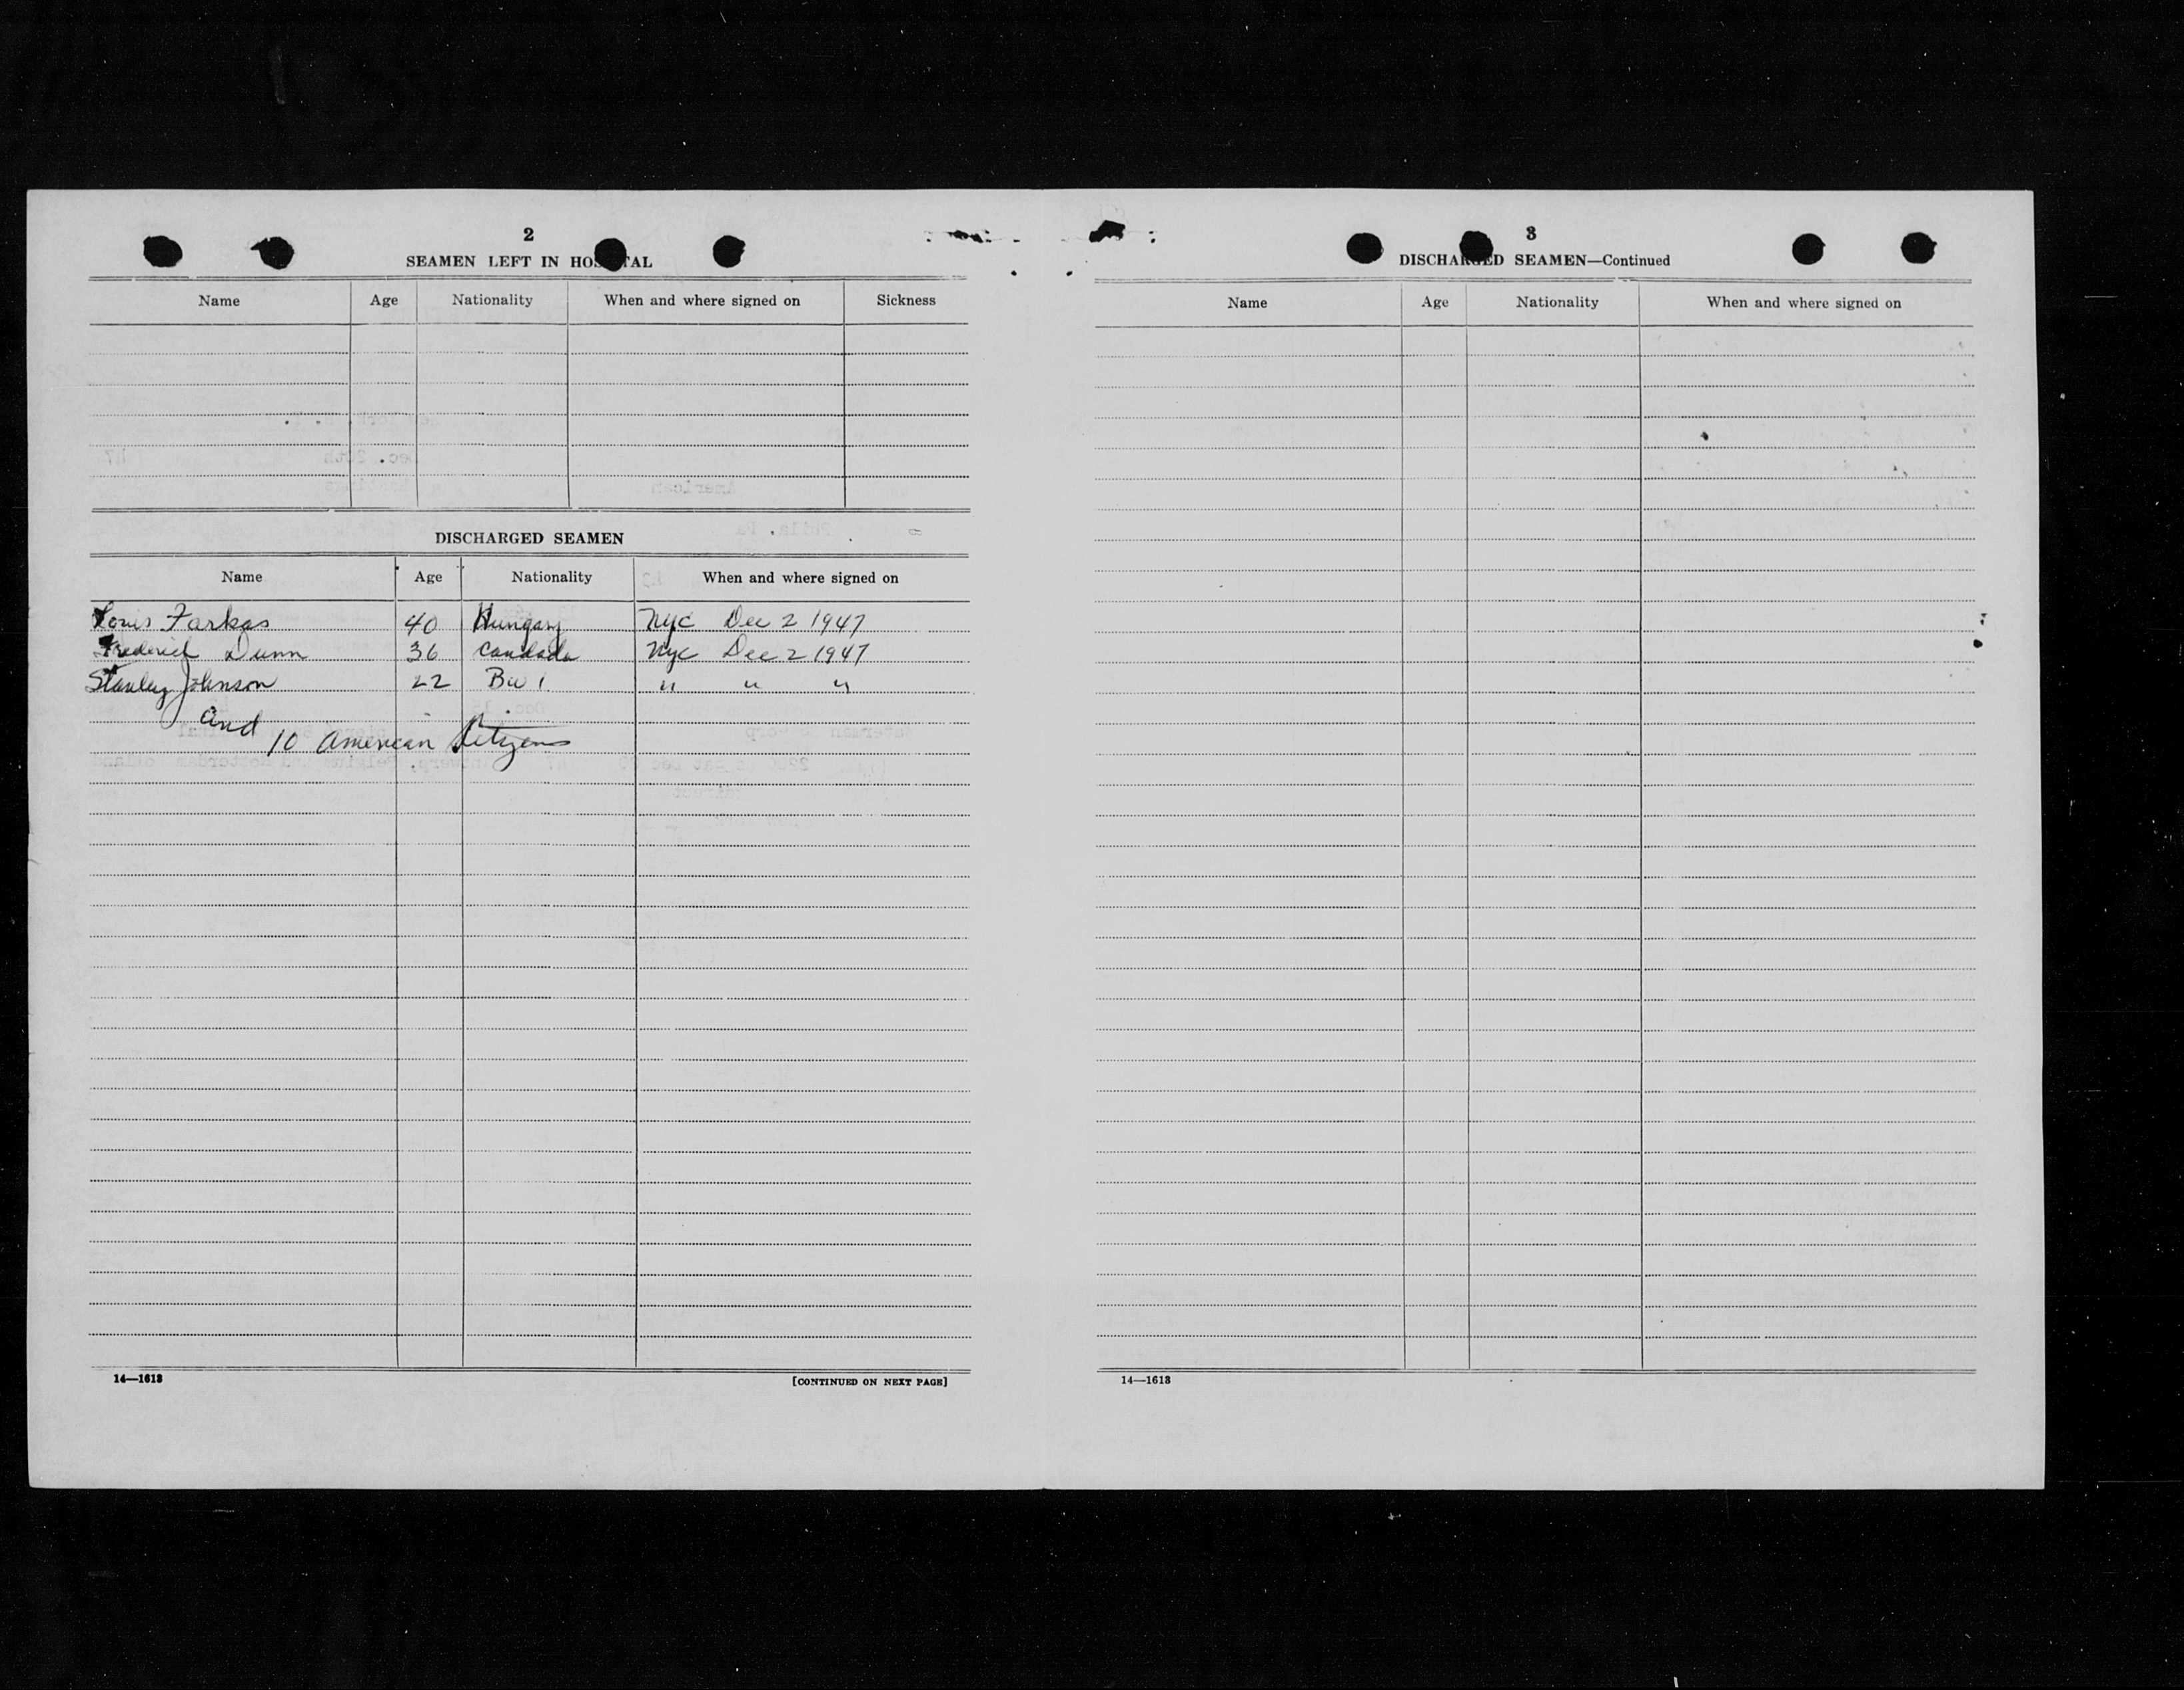 2
SEAMEN LEFT IN HOSPITAL
Name Age Nationality When and where signed on Sickness
DISCHARGED SEAMEN
Name Age Nationality When and where signed on
Louis Farkas 40 Hungary NYC Dec 2 1947
Frederick Dunn 36 Candada NYC Dec 2 1947
Stanley Johnson 22 B W I " " "
And
10 American Citizens
14—1613
[CONTINUED ON NEXT PAGE]
3
DISCHARGED SEAMEN—Continued
Name Age Nationality When and where signed on
14—1613